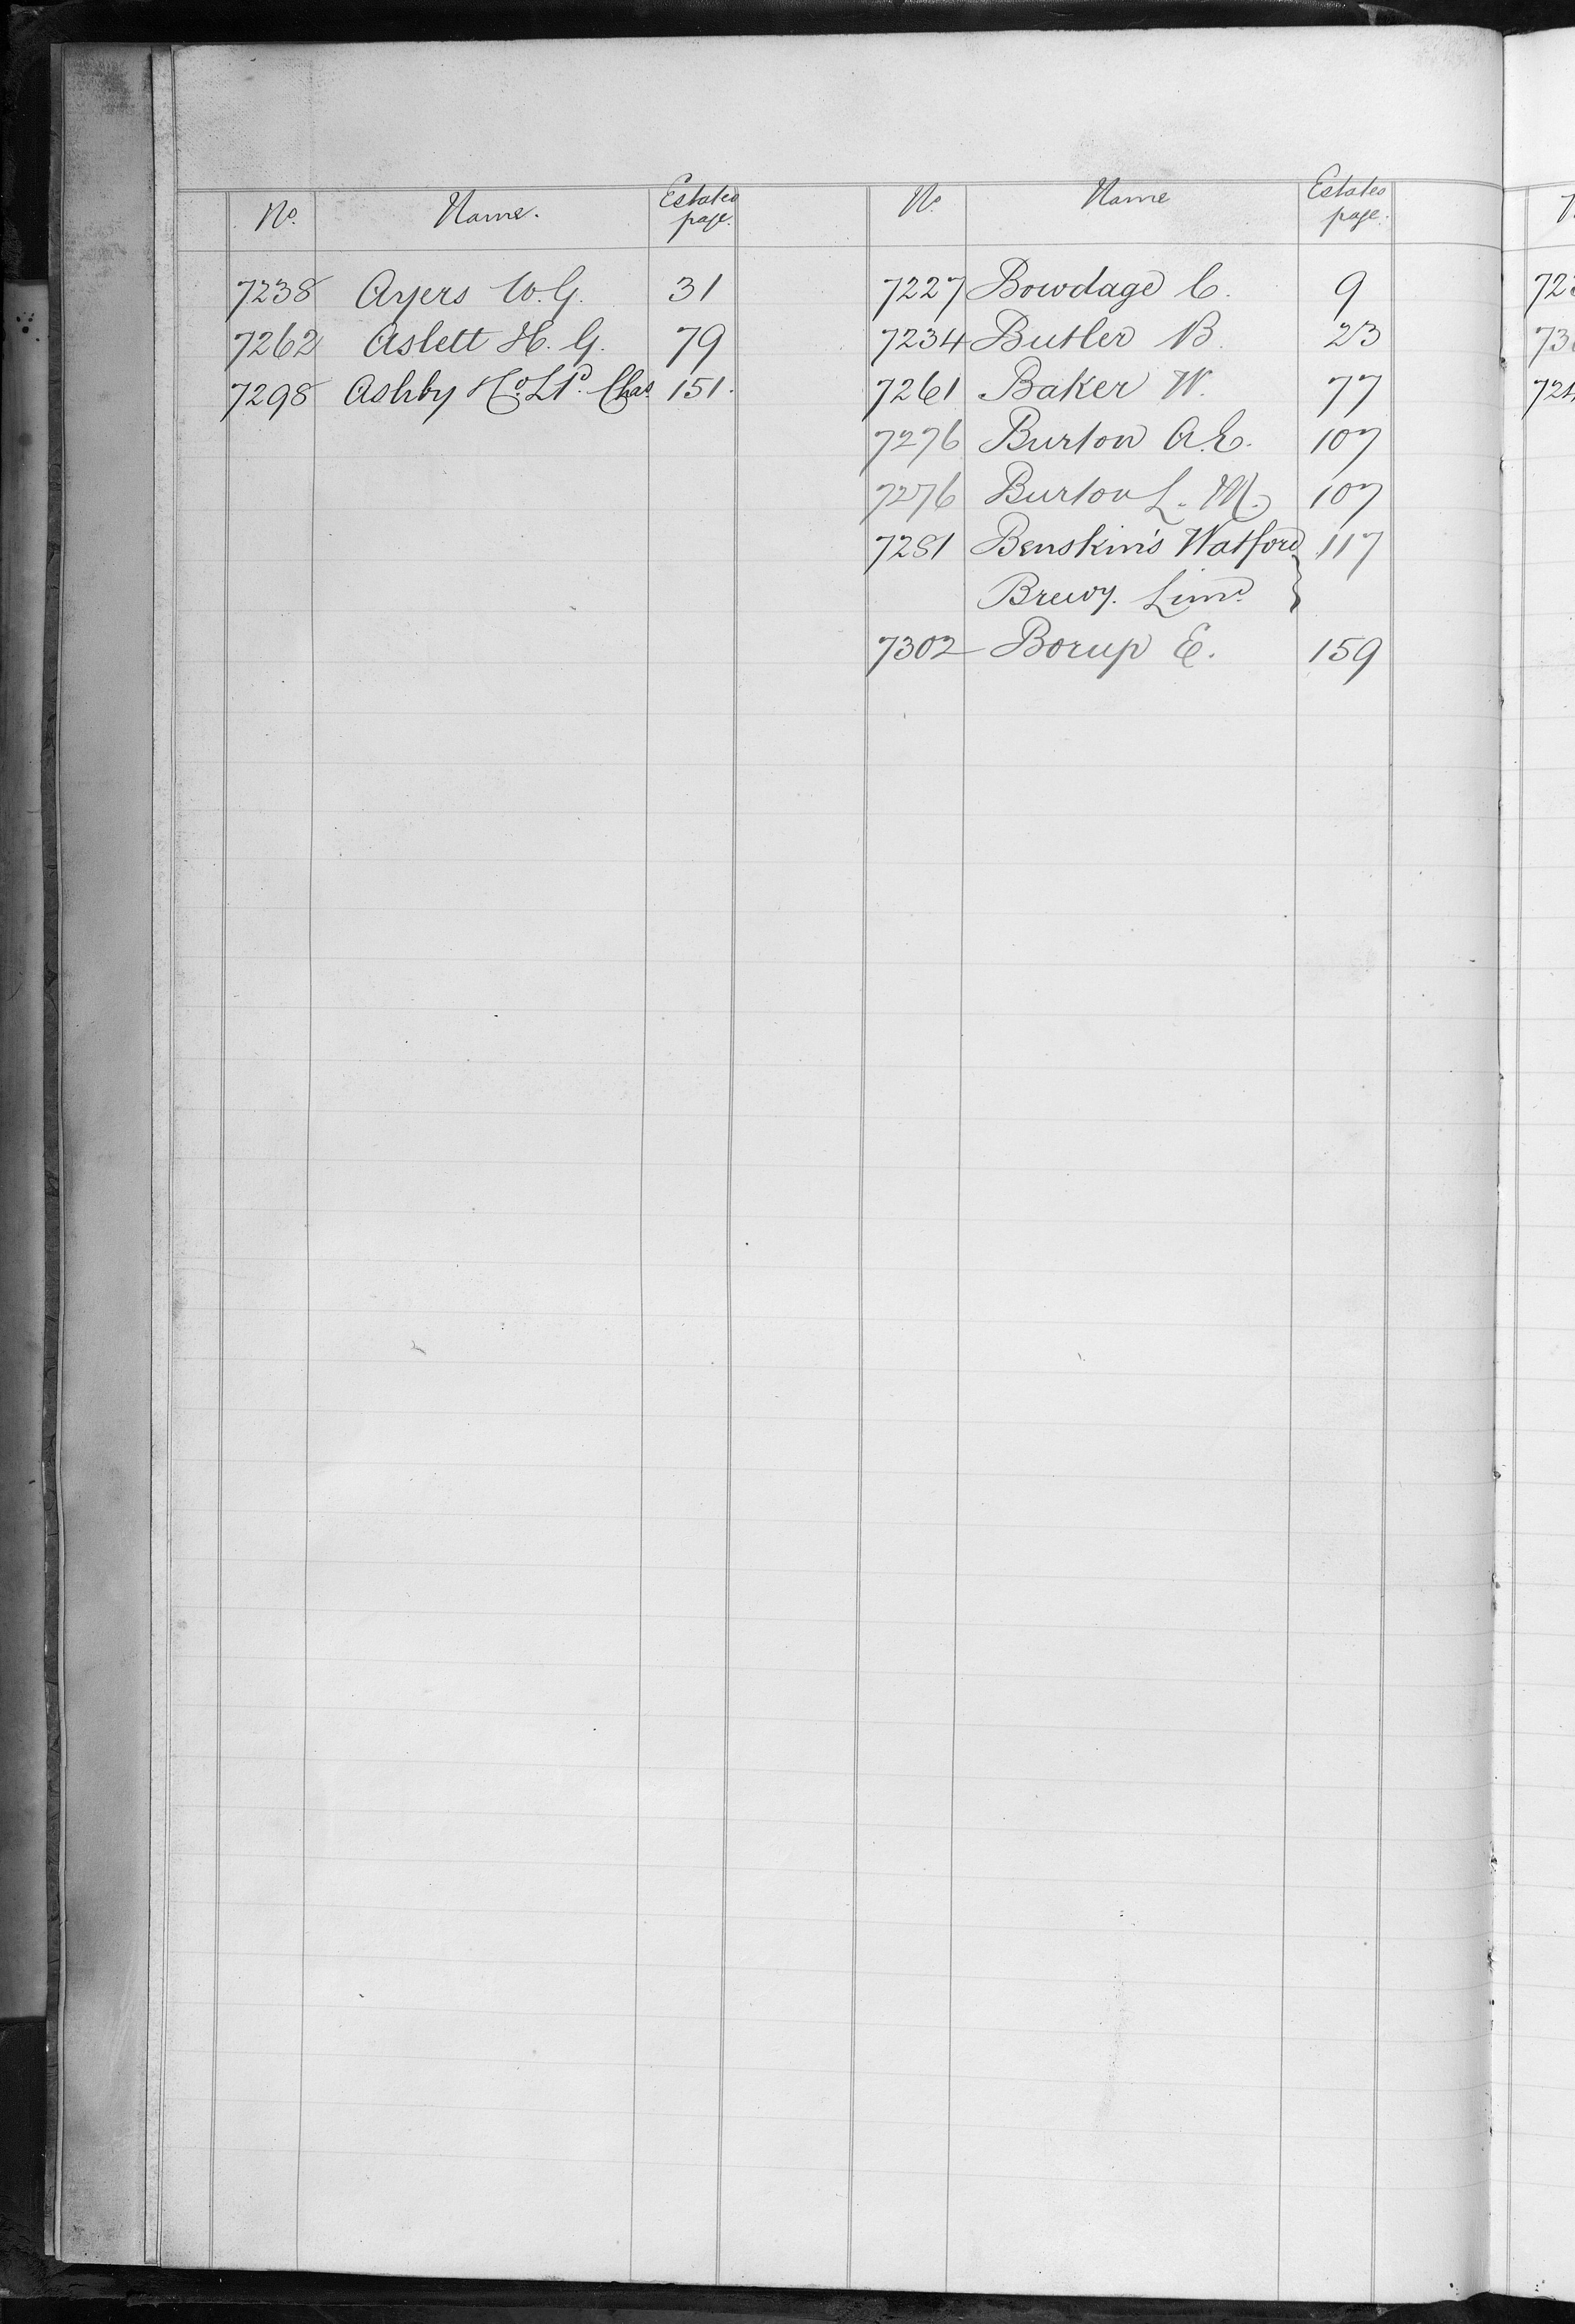 No. Name. Estates page.
7238 Ayers W. G. 31
7262 Aslett H. G. 79
7298 Ashby & Co Ltd. Chas. 151.
No. Name Estates page.
7227 Bowdage C. 9
7234 Butler B. 23
7261 Baker W. 77
7276 Burton A. E. 107
7276 Burton L. M. 107
7281 Benskin's Watford 117
Brewy. Limd.
7302 Borup E. 159